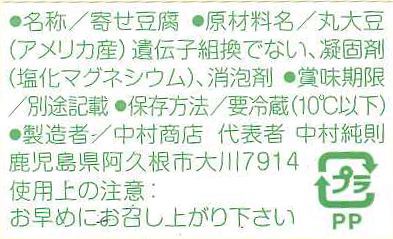 ●名称／寄せ豆腐 ●原材料名／丸大豆
(アメリカ産)遺伝子組換でない、凝固剤
(塩化マグネシウム)、消泡剤 ●賞味期限
／別途記載 ●保存方法／要冷蔵(10℃以下)
●製造者／中村商店 代表者 中村純則
鹿児島県阿久根市大川7914
使用上の注意:
お早めにお召し上がり下さい
プラ
PP